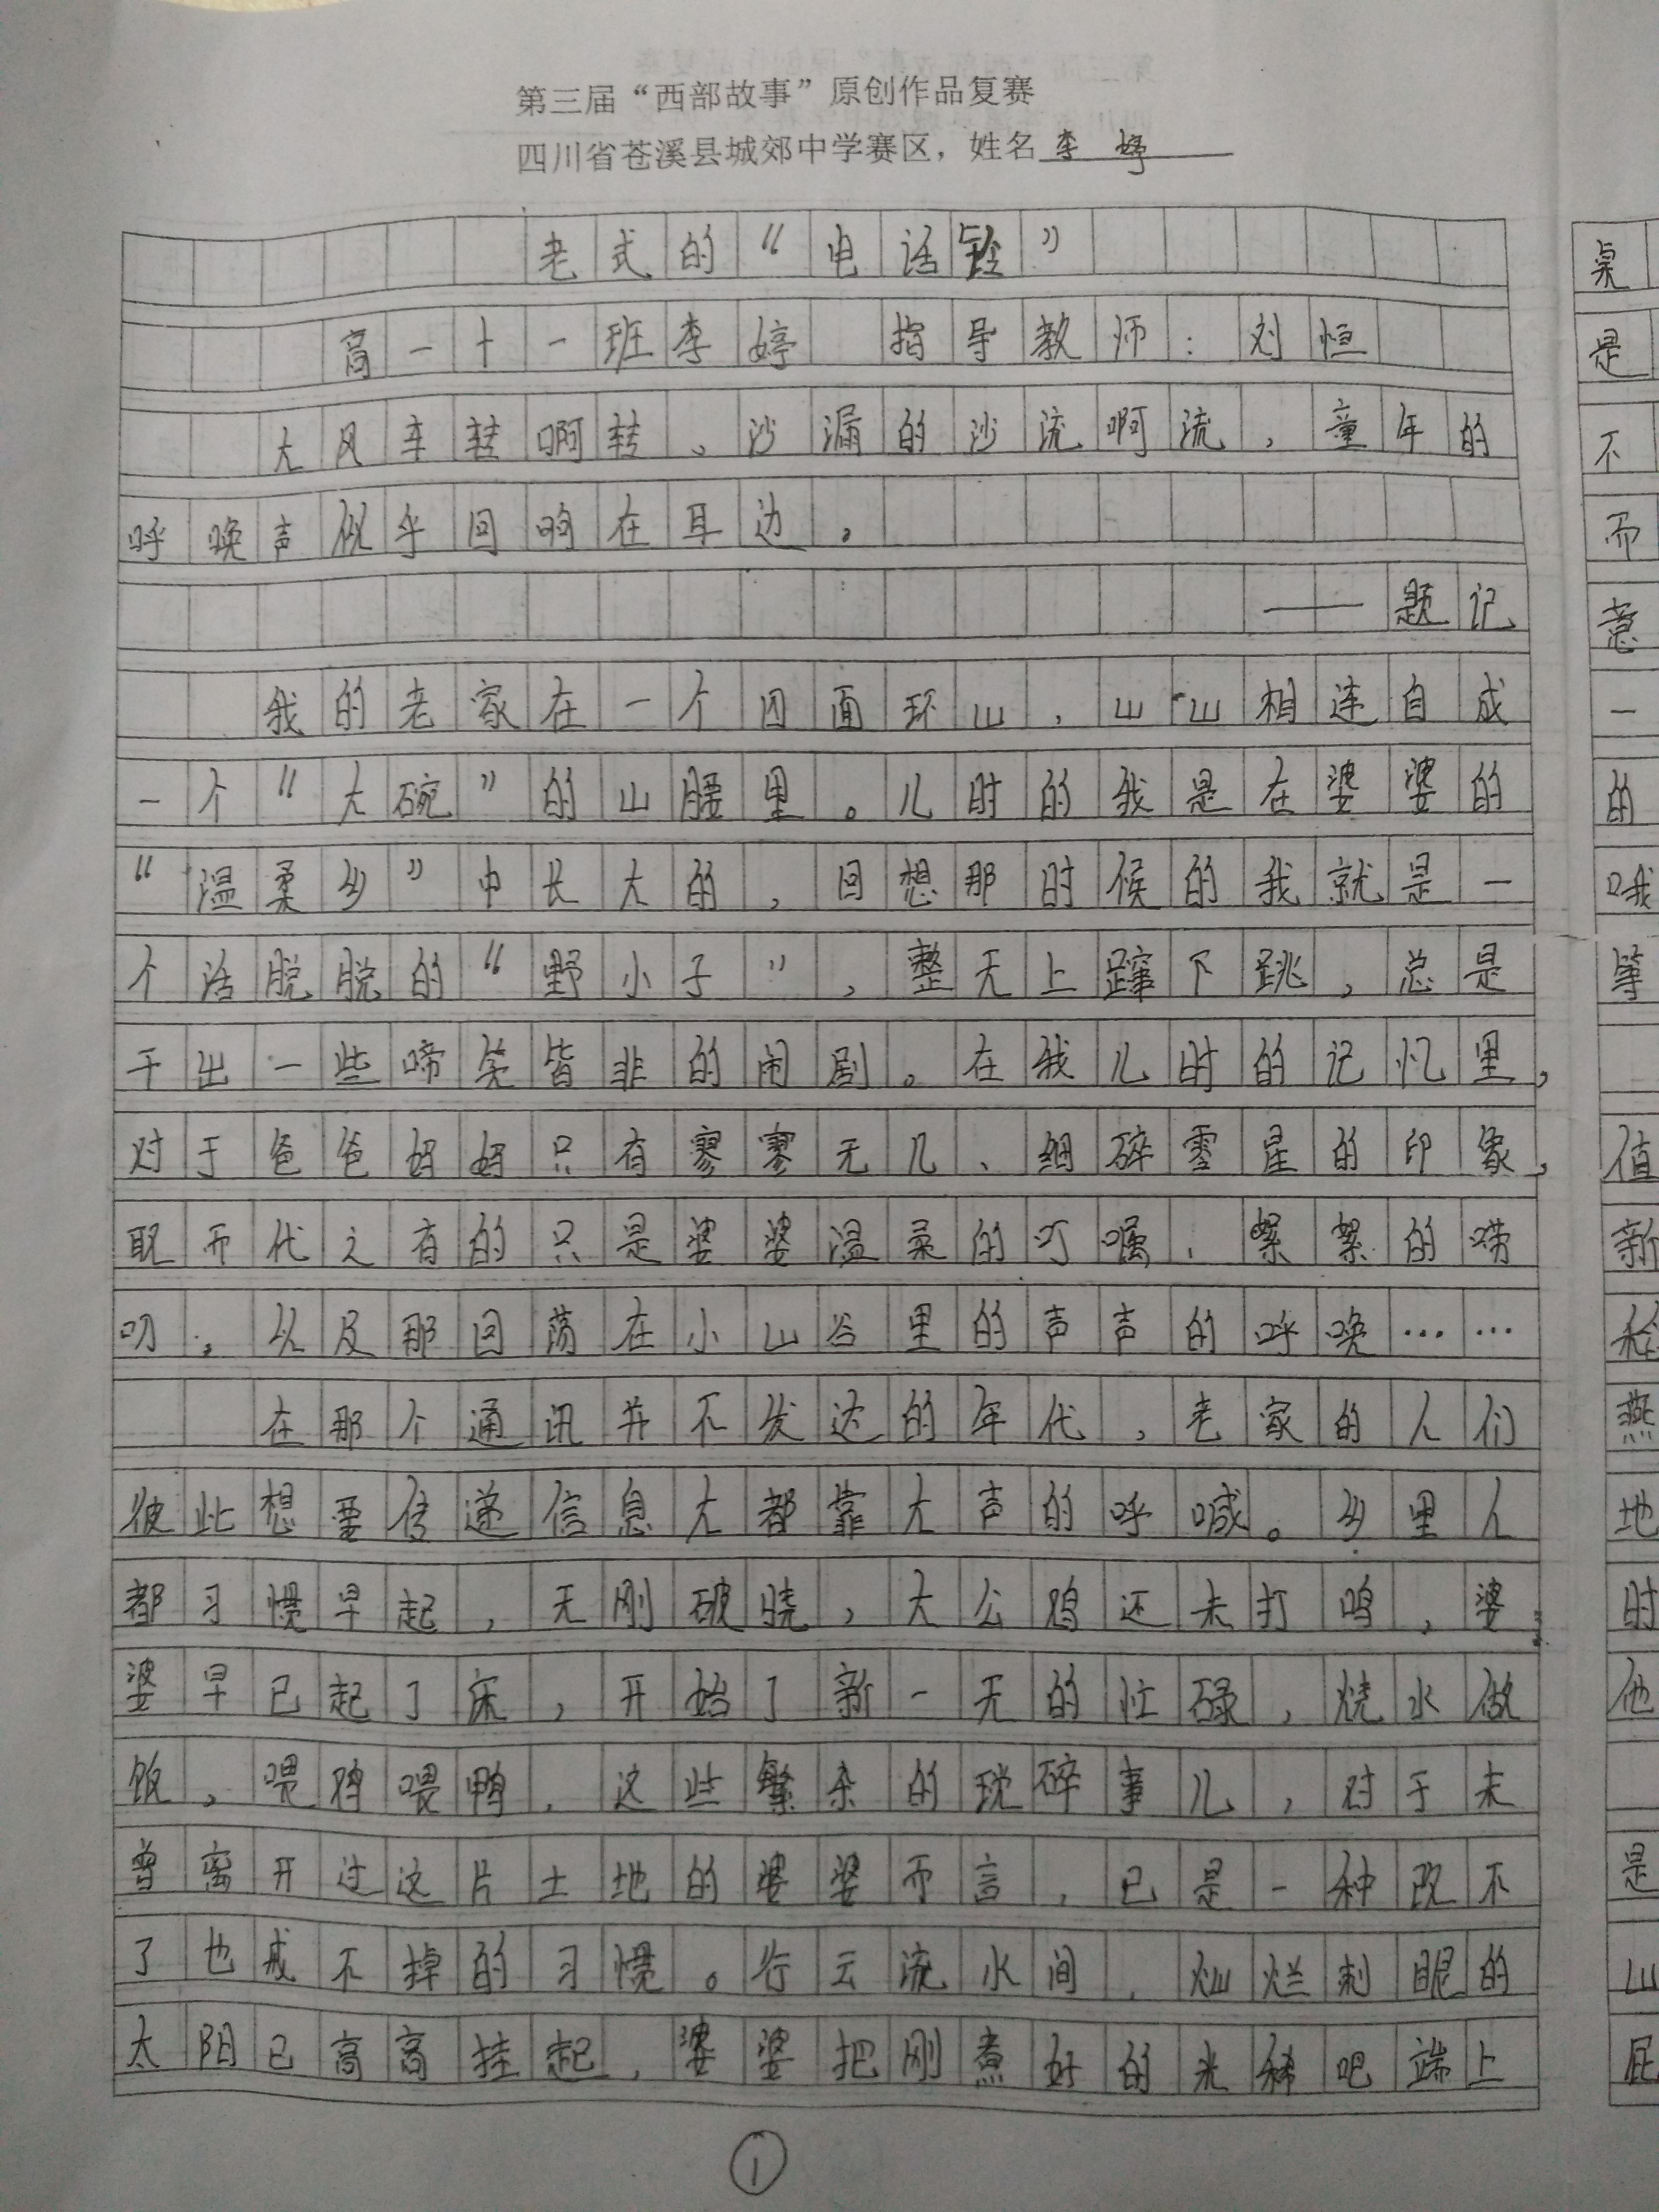 第三届“西部故事”原创作品复赛
四川省苍溪县城郊中学赛区，姓名李婷
老式的“电话铃”
高一十一班李婷 指导教师：刘恒
大风车转啊转、沙漏的沙流啊流，童年的
呼唤声似乎回响在耳边。
——题记
我的老家在一个四面环山，山山相连自成
一个“大碗”的山腰里。儿时的我是在婆婆的
“温柔乡”中长大的，回想那时候的我就是一
个活脱脱的“野小子”，整天上蹿下跳，总是
干出一些啼笑皆非的闹剧。在我儿时的记忆里，
对于爸爸妈妈只有寥寥无几、细碎零星的印象，
取而代之有的只是婆婆温柔的叮嘱、絮絮的唠
叨，以及那回荡在小山谷里的声声的呼唤……
在那个通讯并不发达的年代，老家的人们
彼此想要传递信息大都靠大声的呼喊。乡里人
都习惯早起，天刚破晓，大公鸡还未打鸣，婆
婆早已起了床，开始了新一天的忙碌，烧水做
饭，喂鸡喂鸭，这些繁杂的琐碎事儿，对于未
曾离开过这片土地的婆婆而言，已是一种改不
了也戒不掉的习惯。行云流水间，灿烂刺眼的
太阳已高高挂起，婆婆把刚煮好的米稀吧端上
①
桌
是
不
而
意
一
的
哦
等
值
新
燕
地
时
他
是
山
屁